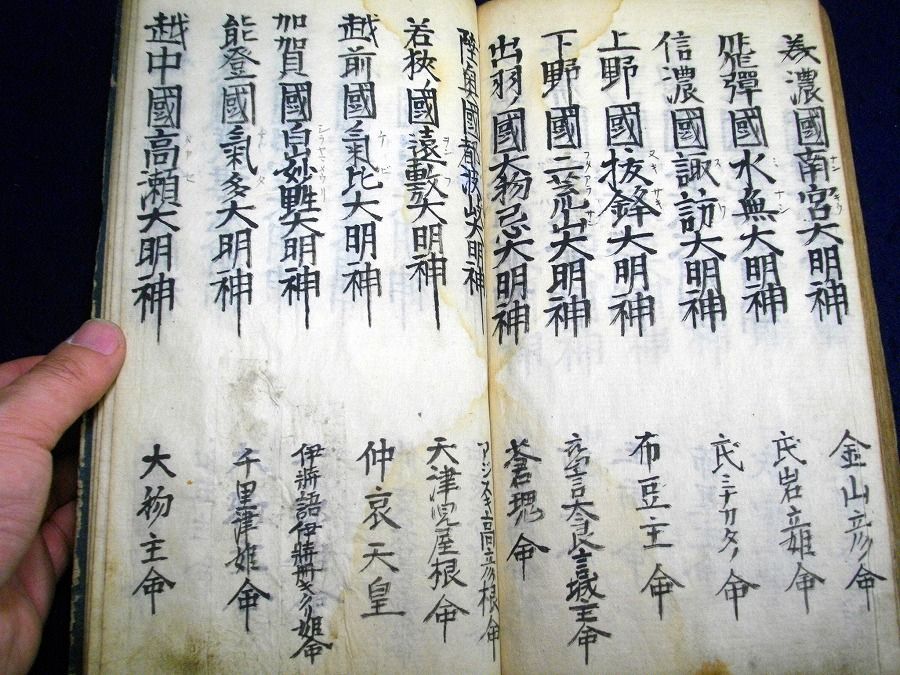 美濃國南宮大明神
金山彦ノ命
飛彈國水無大明神
氏岩立姫命
信濃國諏訪大明神
氏ミナカタノ命
上野國抜鋒大明神
布豆主命
下野國二荒山大明神
大城主命
出羽ノ國大物忌大明神
蒼瑰命
陸奥國都波岐大明神
アジスキ高彦根命
若狹ノ國遠敷大明神
天津児屋根命
越前國氣比大明神
仲哀天皇
加賀國白山妙理大明神
伊弉諾伊弉冊キクリ姫命
能登國氣多大明神
千里津姫命
越中國高瀬大明神
大物主命